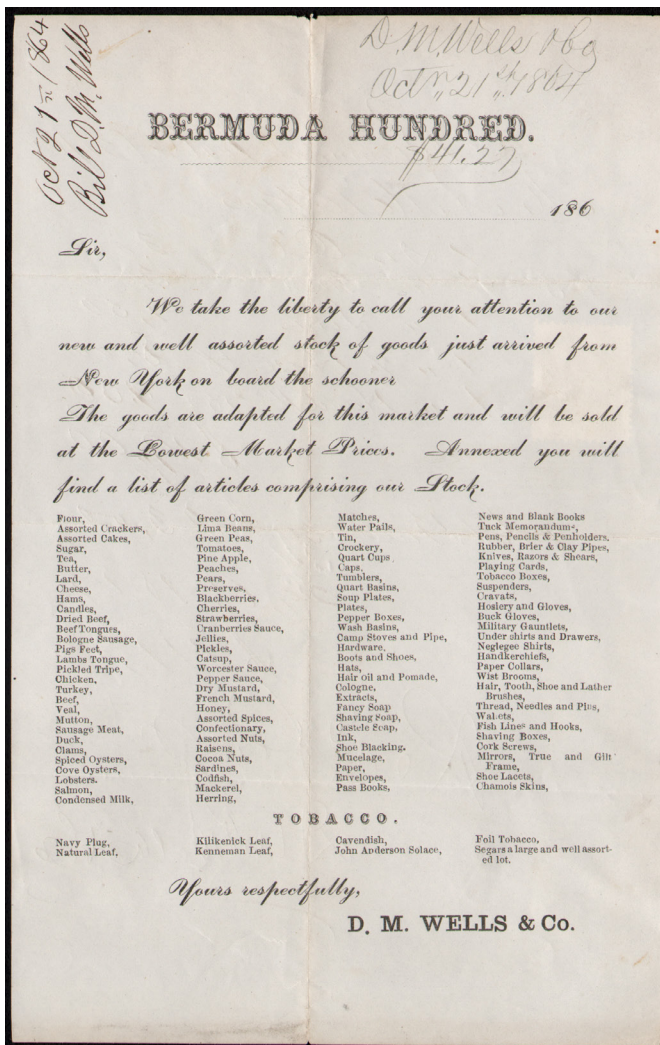 Oct 21st 1864
Bill D. M. Wells
D. M. Wells & Co
Octr 21st 1864
BERMUDA HUNDRED.
$41.27
186
Sir,
We take the liberty to call your attention to our
new and well assorted stock of goods just arrived from
New York on board the schooner
The goods are adapted for this market and will be sold
at the Lowest Market Prices. Annexed you will
find a list of articles comprising our Stock.
Flour,
Assorted Crackers,
Assorted Cakes,
Sugar,
Tea,
Butter,
Lard,
Cheese,
Hams,
Candles,
Dried Beef,
Beef Tongues,
Bologne Sausage,
Pigs Feet,
Lambs Tongue,
Pickled Tripe,
Chicken,
Turkey,
Beef,
Veal,
Mutton,
Sausage Meat,
Duck,
Clams,
Spiced Oysters,
Cove Oysters,
Lobsters.
Salmon,
Condensed Milk,
Green Corn,
Lima Beans,
Green Peas,
Tomatoes,
Pine Apple,
Peaches,
Pears,
Preserves,
Blackberries.
Cherries,
Strawberries,
Cranberries Sauce,
Jellies,
Pickles,
Catsup,
Worcester Sauce,
Pepper Sauce,
Dry Mustard,
French Mustard,
Honey,
Assorted Spices,
Confectionary,
Assorted Nuts,
Raisens,
Cocoa Nuts,
Sardines,
Codfish,
Mackerel,
Herring,
Matches,
Water Pails,
Tin,
Crockery,
Quart Cups.
Caps.
Tumblers,
Quart Basins,
Soup Plates,
Plates,
Pepper Boxes,
Wash Basins,
Camp Stoves and Pipe,
Hardware.
Boots and Shoes,
Hats,
Hair oil and Pomade,
Cologne,
Extracts,
Fancy Soap
Shaving Soap,
Castele Soap,
Ink,
Shoe Blacking.
Mucelage,
Paper,
Envelopes,
Pass Books,
News and Blank Books
Tuck Memorandums,
Pens, Pencils & Penholders.
Rubber, Brier & Clay Pipes,
Knives, Razors & Shears,
Playing Cards,
Tobacco Boxes,
Suspenders,
Cravats,
Hosiery and Gloves,
Buck Gloves,
Military Gauntlets,
Under shirts and Drawers,
Neglegee Shirts,
Handkerchiefs,
Paper Collars,
Wist Brooms,
Hair, Tooth, Shoe and Lather
Brushes,
Thread, Needles and Pins,
Walets,
Fish Lines and Hooks,
Shaving Boxes,
Cork Screws,
Mirrors, True and Gilt
Frame,
Shoe Lacets,
Chamois Skins,
TOBACCO.
Navy Plug,
Natural Leaf,
Kilikenick Leaf,
Kenneman Leaf,
Cavendish,
John Anderson Solace,
Foil Tobacco,
Segars a large and well assort-
ed lot.
Yours respectfully,
D. M. WELLS & Co.